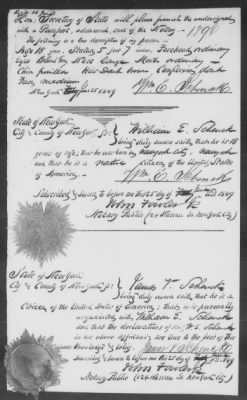 Hon. Secretary of State will please furnish the undersigned
with a Passport, addressed, care of the Notary
The following is a true description of my person
Age 18 yrs. Stature, 5 feet 7 Forehead ordinary
Eyes Nose large Mouth ordinary
Chin Hair Dark brown Complexion dark
Face, medium
New York 25 1849
Wm E. Schenck
State of New York
City & County of New York ss:
William E. Schenck
being duly sworn saith, that he is 18
years of age; that he was born in New York
and that he is a native citizen of the United States
of America
Wm E. Schenck
Subscribed & Sworn to before me this 25 day 1849
John Fowler Jr
Notary Public Nassau St. New York city)
State of New York
City & County of New York, ss:
James V. Schenck
being duly sworn saith, that he is a
Citizen of the United States of America; that he is personally
acquainted with William E. Schenck
and that the declarations of Wm E. Schenck
in his above affidavit are true to the best of this
knowledge & belief
Sworn to before me this 25 1849
John Fowler Jr
Notary Public New York city)